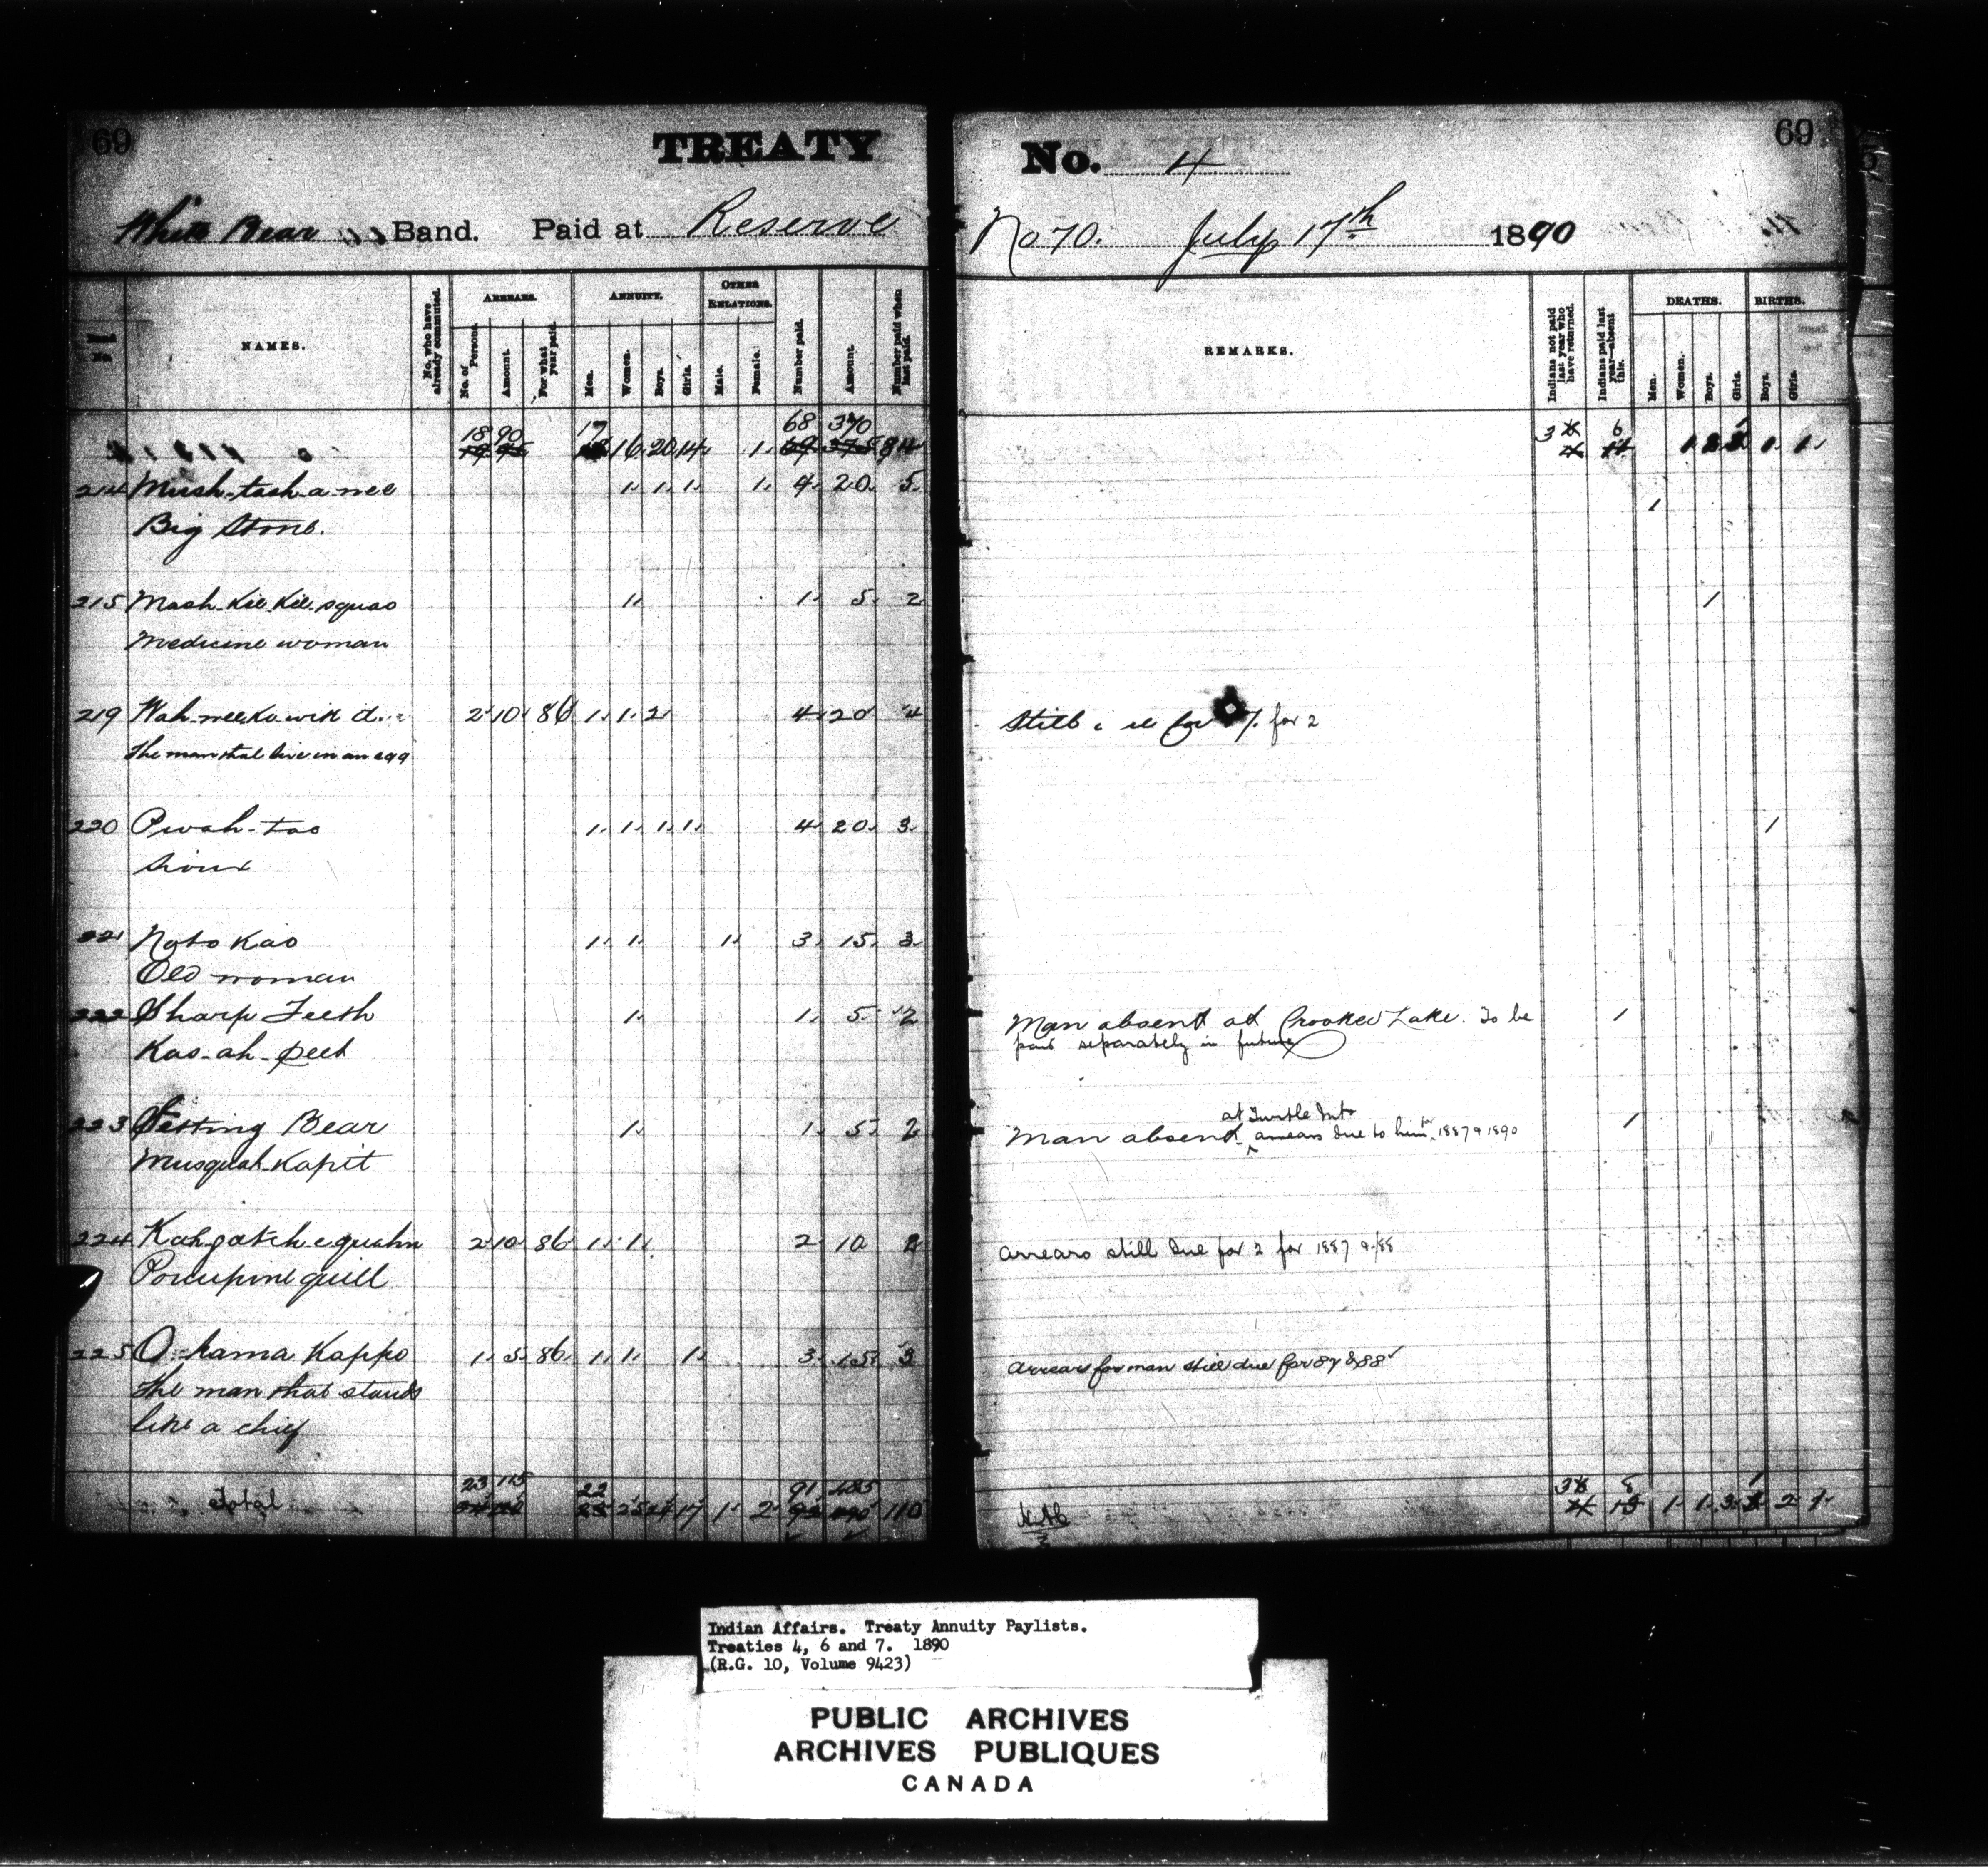 69
TREATY
White Bear Band. Paid at Reserve
NAMES.
No. who have already commuted.
ARREARS.
No. of Persons.
Amount.
For what year paid.
ANNUITY.
Men.
Women.
Boys.
Girls.
OTHER RELATIONS.
Male.
Female.
Number paid.
Amount.
Number paid when last paid.
18 90 17 68 340
16 20 14 1
214 Mush-tash-a-nee 1 1 1 1 4 20 5
Big Stone.
215 Mash-Kee-Kee-squao 1 1 5 2
Medicine woman
219 Wah-wee-ko-witt 2 10 86 1 1 2 4 20 4
The man that live in an egg
220 Pwah-tao 1 1 1 1 4 20 3
Sioux
221 Noto Kao 1 1 1 3 15 3
Old woman
222 Sharp Teeth 1 1 5 2
Kas-ah-peet
223 Setting Bear 1 1 5 2
Musquah-Kapit
224 Kah-gatch-e-quahn 2 10 86 1 1 2 10 2
Porcupine quill
225 O-kama Kappo 1 5 86 1 1 1 3 15 3
The man that stands
like a chief
23 115 22 91 485
Total 17 1 2 110
69
No. 4
No 70. July 17th 1890
REMARKS.
Indians not paid last year who have returned.
Indians paid last year—absent this.
DEATHS.
Men.
Women.
Boys.
Girls.
BIRTHS.
Boys.
Girls.
3 6
1 1 1
1
1
Still for 2
1
Man absent at Crooked Lake. To be 1
paid separately in future
at Turtle Mts
Man absent arrears due to him for 1887 & 1890 1
arrears still due for 2 for 1887 & /88
arrears for man still due for 87 & 88
3 8
1 1 3 2 1
Indian Affairs. Treaty Annuity Paylists.
Treaties 4, 6 and 7. 1890
(R.G. 10, Volume 9423)
PUBLIC ARCHIVES
ARCHIVES PUBLIQUES
CANADA